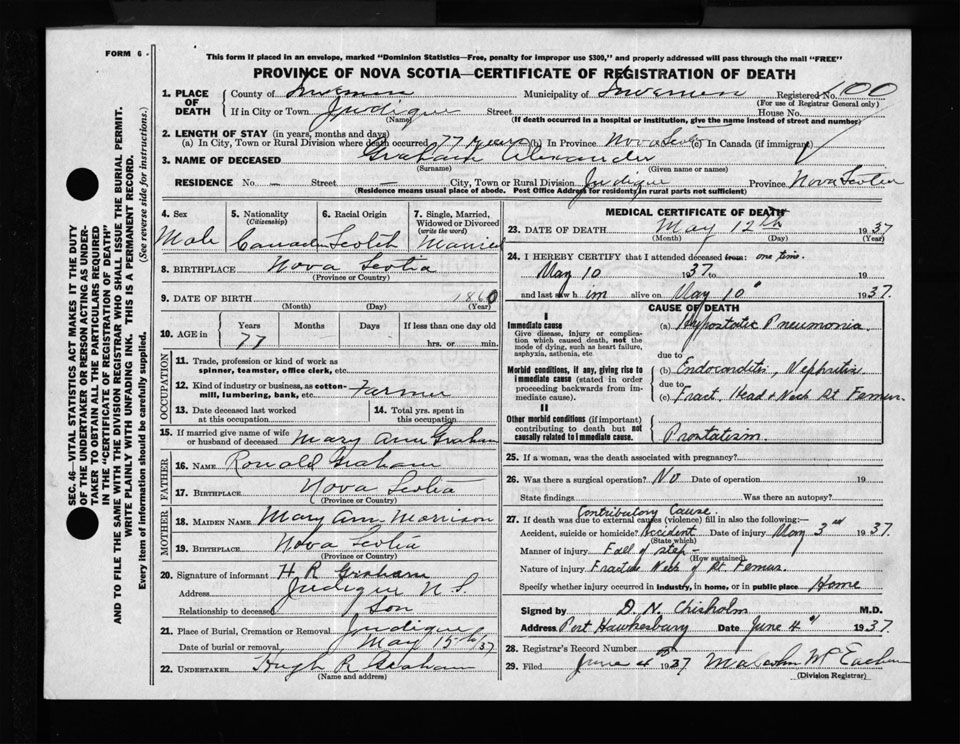 FORM 6
This form if placed in an envelope, marked "Dominion Statistics—Free, penalty for improper use $300," and properly addressed will pass through the mail "FREE"
PROVINCE OF NOVA SCOTIA—CERTIFICATE OF REGISTRATION OF DEATH
SEC. 46—VITAL STATISTICS ACT MAKES IT THE DUTY
OF THE UNDERTAKER OR PERSON ACTING AS UNDER-
TAKER TO OBTAIN ALL THE PARTICULARS REQUIRED
IN THE "CERTIFICATE OF REGISTRATION OF DEATH"
AND TO FILE THE SAME WITH THE DIVISION REGISTRAR WHO SHALL ISSUE THE BURIAL PERMIT.
WRITE PLAINLY WITH UNFADING INK. THIS IS A PERMANENT RECORD.
Every item of information should be carefully supplied. (See reverse side for instructions.)
1. PLACE OF DEATH
County of Inverness Municipality of Inverness Registered No. 100
(For use of Registrar General only)
If in City or Town Judique Street House No.
(Name) (If death occurred in a hospital or institution, give the name instead of street and number)
2. LENGTH OF STAY (in years, months and days)
(a) In City, Town or Rural Division where death occurred 77 years (b) In Province Nova Scotia (c) In Canada (if immigrant)
3. NAME OF DECEASED Graham Alexander
(Surname) (Given name or names)
RESIDENCE No. — Street — City, Town or Rural Division Judique Province Nova Scotia
(Residence means usual place of abode. Post Office Address for residents in rural parts not sufficient)
4. Sex
Male
5. Nationality
(Citizenship)
Canadian
6. Racial Origin
Scotch
7. Single, Married, Widowed or Divorced
(write the word)
Married
8. BIRTHPLACE Nova Scotia
(Province or Country)
9. DATE OF BIRTH 1860
(Month) (Day) (Year)
10. AGE in Years Months Days If less than one day old
77 hrs. or min.
OCCUPATION
11. Trade, profession or kind of work as
spinner, teamster, office clerk, etc.
12. Kind of industry or business, as cotton-
mill, lumbering, bank, etc. Farmer
13. Date deceased last worked
at this occupation
14. Total yrs. spent in
this occupation
15. If married give name of wife
or husband of deceased Mary Ann Graham
FATHER
16. NAME Ronald Graham
17. BIRTHPLACE Nova Scotia
(Province or Country)
MOTHER
18. MAIDEN NAME Mary Ann Morrison
19. BIRTHPLACE Nova Scotia
(Province or Country)
20. Signature of informant H R Graham
Address Judique N.S.
Relationship to deceased Son
21. Place of Burial, Cremation or Removal Judique
Date of burial or removal May 15th/37
22. UNDERTAKER Hugh R Graham
(Name and address)
MEDICAL CERTIFICATE OF DEATH
23. DATE OF DEATH May 12th 1937
(Month) (Day) (Year)
24. I HEREBY CERTIFY that I attended deceased from: one time.
May 10 1937 to 19
and last saw him alive on May 10" 1937.
CAUSE OF DEATH
I
Immediate cause
Give disease, injury or complica-
tion which caused death, not the
mode of dying, such as heart failure,
asphyxia, asthenia, etc
(a) Hypostatic Pneumonia.
due to
Morbid conditions, if any, giving rise to
immediate cause (stated in order
proceeding backwards from im-
mediate cause).
(b) Endocarditis, Nephritis
due to
(c) Fract. Head & Neck Rt Femur.
II
Other morbid conditions (if important)
contributing to death but not
causally related to immediate cause.
Prostatism.
25. If a woman, was the death associated with pregnancy?
26. Was there a surgical operation? No Date of operation 19
State findings Was there an autopsy?
Contributory Cause.
27. If death was due to external causes (violence) fill in also the following:—
Accident, suicide or homicide? Accident Date of injury May 3rd 1937.
(State which)
Manner of injury Fall of step -
(How sustained)
Nature of injury Fracture Neck of Rt Femur.
Specify whether injury occurred in industry, in home, or in public place Home
Signed by D. N. Chisholm M.D.
Address Port Hawkesbury Date June 4th 1937.
28. Registrar's Record Number
29. Filed June 4th 1937 Malcolm McEachern
(Division Registrar)